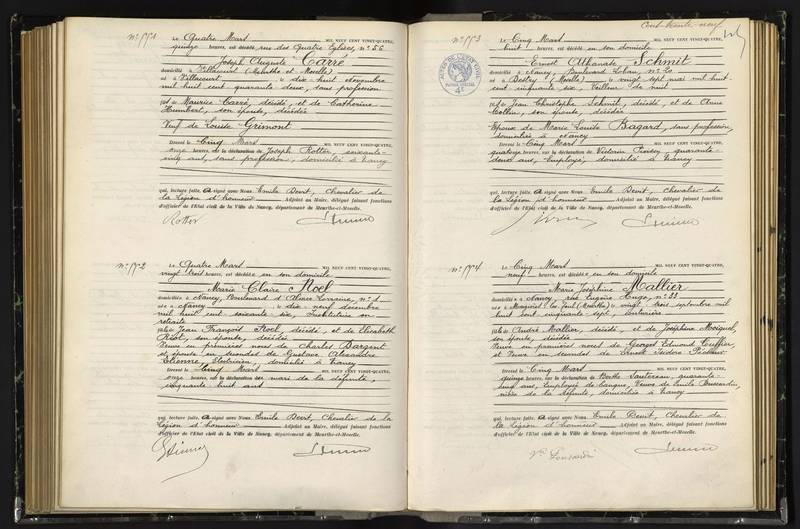 N° 551 Le Quatre Mars MIL NEUF CENT VINGT-QUATRE,
quinze heures, est décédé rue des Quatre Eglises, n° 56
Joseph Auguste Carré
domicilié à Villacourt (Meurthe et Moselle)
né à Villacourt, le dix-huit novembre
mil huit cent quarante deux, sans profession
fils de Maurice Carré, décédé, et de Catherine
Humbert, son épouse, décédée
Veuf de Louise Grimont
Dressé le Cinq Mars MIL NEUF CENT VINGT-QUATRE,
onze heures, sur la déclaration de Joseph Rotter, soixante-
cinq ans, sans profession, domicilié à Nancy
qui, lecture faite, A signé avec Nous Emile Devit, Chevalier de
la Légion d'honneur Adjoint au Maire, délégué faisant fonctions
d'officier de l'Etat civil de la Ville de Nancy, département de Meurthe-et-Moselle.
Rotter
N° 552 Le Quatre Mars MIL NEUF CENT VINGT-QUATRE,
vingt trois heures, est décédée en son domicile
Marie Claire Noel
domiciliée à Nancy, Boulevard d'Alsace Lorraine, n° 1
née à Nancy le dix neuf décembre
mil huit cent soixante-six, Institutrice en
retraite
fille de Jean François Noel, décédé, et de Elisabeth
son épouse, décédée
Veuve en premières noces de Charles Bargent
et épouse en secondes de Gustave Alexandre
Etienne, Electricien, domicilié à Nancy
Dressé le Cinq Mars MIL NEUF CENT VINGT-QUATRE,
onze heures, sur la déclaration du mari de la défunte,
cinquante huit ans
qui, lecture faite, A signé avec Nous Emile Devit, Chevalier de la
Légion d'honneur Adjoint au Maire, délégué faisant fonctions
d'officier de l'Etat civil de la Ville de Nancy, département de Meurthe-et-Moselle.
Etienne
Cent trente-neuf
N° 553 Le Cinq Mars MIL NEUF CENT VINGT-QUATRE,
huit heures, est décédé en son domicile
Ernest Athanase Schmit
domicilié à Nancy, Boulevard Lobau, n° 20
né à (Moselle) le vingt sept mai mil huit
cent cinquante six, Veilleur de nuit
fils de Jean Christophe Schmit, décédé, et de Anne
Collin, son épouse, décédée
Epoux de Marie Louise Bagard, sans profession,
domiciliée à Nancy
Dressé le Cinq Mars MIL NEUF CENT VINGT-QUATRE,
quatorze heures, sur la déclaration de Victorin quarante-
deux ans, employé, domicilié à Nancy
qui, lecture faite, A signé avec Nous Emile Devit, Chevalier de
la Légion d'honneur Adjoint au Maire, délégué faisant fonctions
d'officier de l'Etat civil de la Ville de Nancy, département de Meurthe-et-Moselle.
N° 554 Le Cinq Mars MIL NEUF CENT VINGT-QUATRE,
neuf heures, est décédée en son domicile
Marie Joséphine Mallier
domiciliée à Nancy, rue Eugène Hugo, n° 33
née à le vingt-trois septembre mil
huit cent cinquante sept, couturière
fille de André Mallier, décédé, et de Joséphine
son épouse, décédée
Veuve en premières noces de Georges Edmond
et Veuve en secondes de Ernest Isidore
Dressé le Cinq Mars MIL NEUF CENT VINGT-QUATRE,
quinze heures, sur la déclaration de Berthe quarante-
cinq ans, Employée de banque, Veuve de Emile
nièce de la défunte, domiciliée à Nancy
qui, lecture faite, A signé avec Nous Emile Devit, Chevalier de
la Légion d'honneur Adjoint au Maire, délégué faisant fonctions
d'officier de l'Etat civil de la Ville de Nancy, département de Meurthe-et-Moselle.